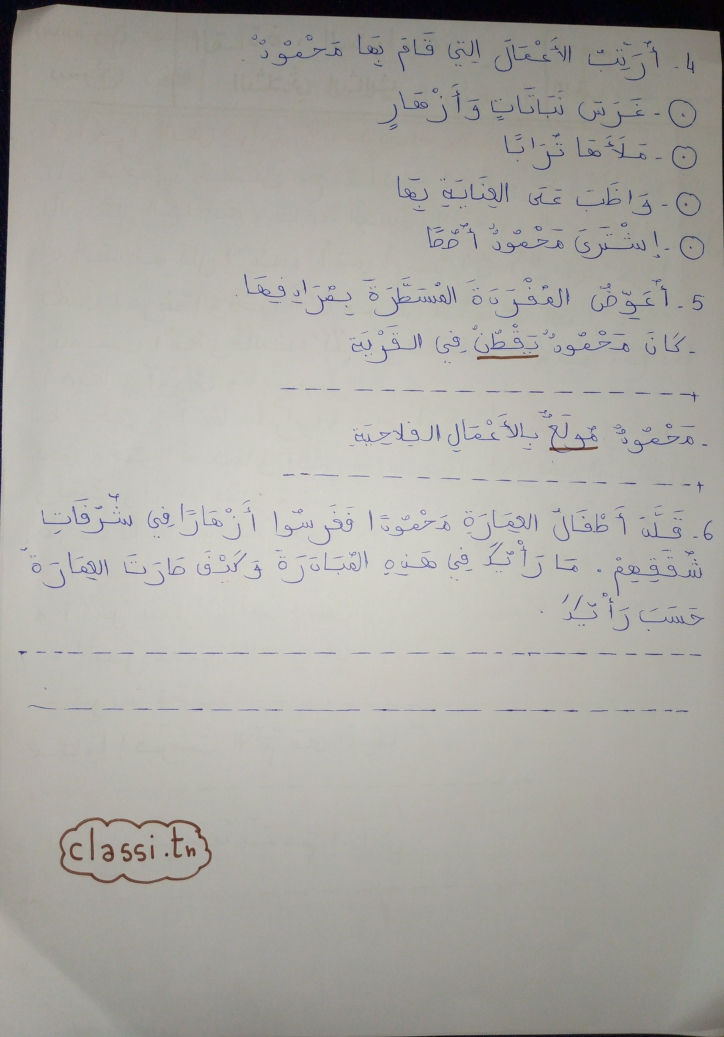 4. أُرَتِّبُ الأَعْمَالَ الَّتِي قَامَ بِهَا مَحْمُودٌ.
- غَرَسَ نَبَاتَاتٍ وَأَزْهَارٍ
- مَلَأَهَا تُرَابًا
- وَاظَبَ عَلَى العِنَايَةِ بِهَا
- إِشْتَرَى مَحْمُودٌ أُصُصًا
5. أُعَوِّضُ المُفْرَدَةَ المُسَطَّرَةَ بِمُرَادِفِهَا.
- كَانَ مَحْمُودٌ يَقْطُنُ فِي القَرْيَةِ
- مَحْمُودٌ مُولَعٌ بِالأَعْمَالِ الفِلاَحِيَّةِ
6. قَلَّدَ أَطْفَالُ العِمَارَةِ مَحْمُودًا فَغَرَسُوا أَزْهَارًا فِي شُرُفَاتِ
شُقَقِهِمْ. مَا رَأْيُكَ فِي هَذِهِ المُبَادَرَةِ وَكَيْفَ صَارَتْ العِمَارَةُ
حَسَبَ رَأْيِكَ.
classi.tn